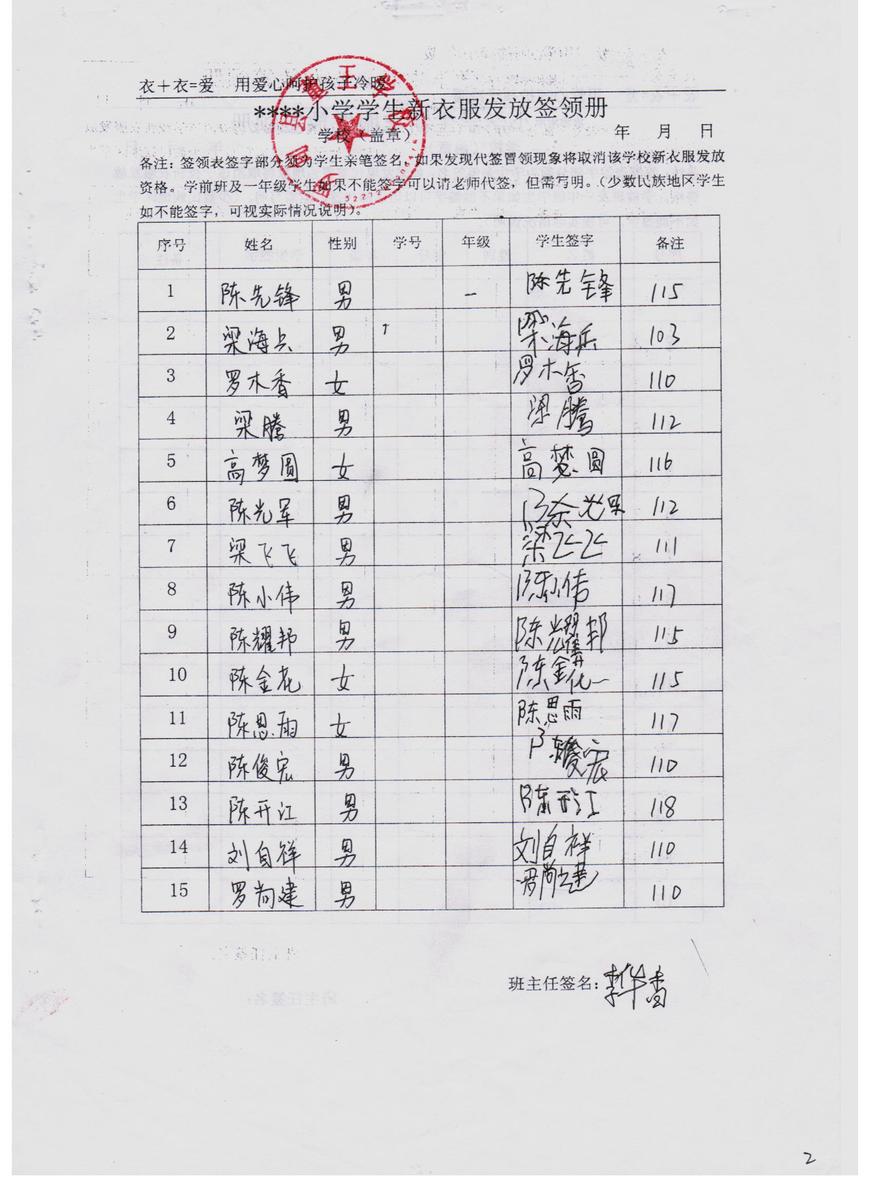 衣＋衣=爱 用爱心呵护孩子冷暖
****小学学生新衣服发放签领册
学校（盖章） 年 月 日
备注：签领表签字部分须为学生亲笔签名，如果发现代签冒领现象将取消该学校新衣服发放
资格。学前班及一年级学生如果不能签字可以请老师代签，但需写明。（少数民族地区学生
如不能签字，可视实际情况说明）。
序号 姓名 性别 学号 年级 学生签字 备注
1 陈先锋 男 一 陈先锋 115
2 梁海兵 男 梁海兵 103
3 罗木香 女 罗木香 110
4 梁腾 男 梁腾 112
5 高梦圆 女 高梦圆 116
6 陈光军 男 陈光军 112
7 梁飞飞 男 梁飞飞 111
8 陈小伟 男 陈小伟 117
9 陈耀邦 男 陈耀邦 115
10 陈金花 女 陈金花 115
11 陈思雨 女 陈思雨 117
12 陈俊宏 男 陈俊宏 110
13 陈开江 男 陈开江 118
14 刘自祥 男 刘自祥 110
15 罗尚建 男 罗尚建 110
班主任签名：李华香
2